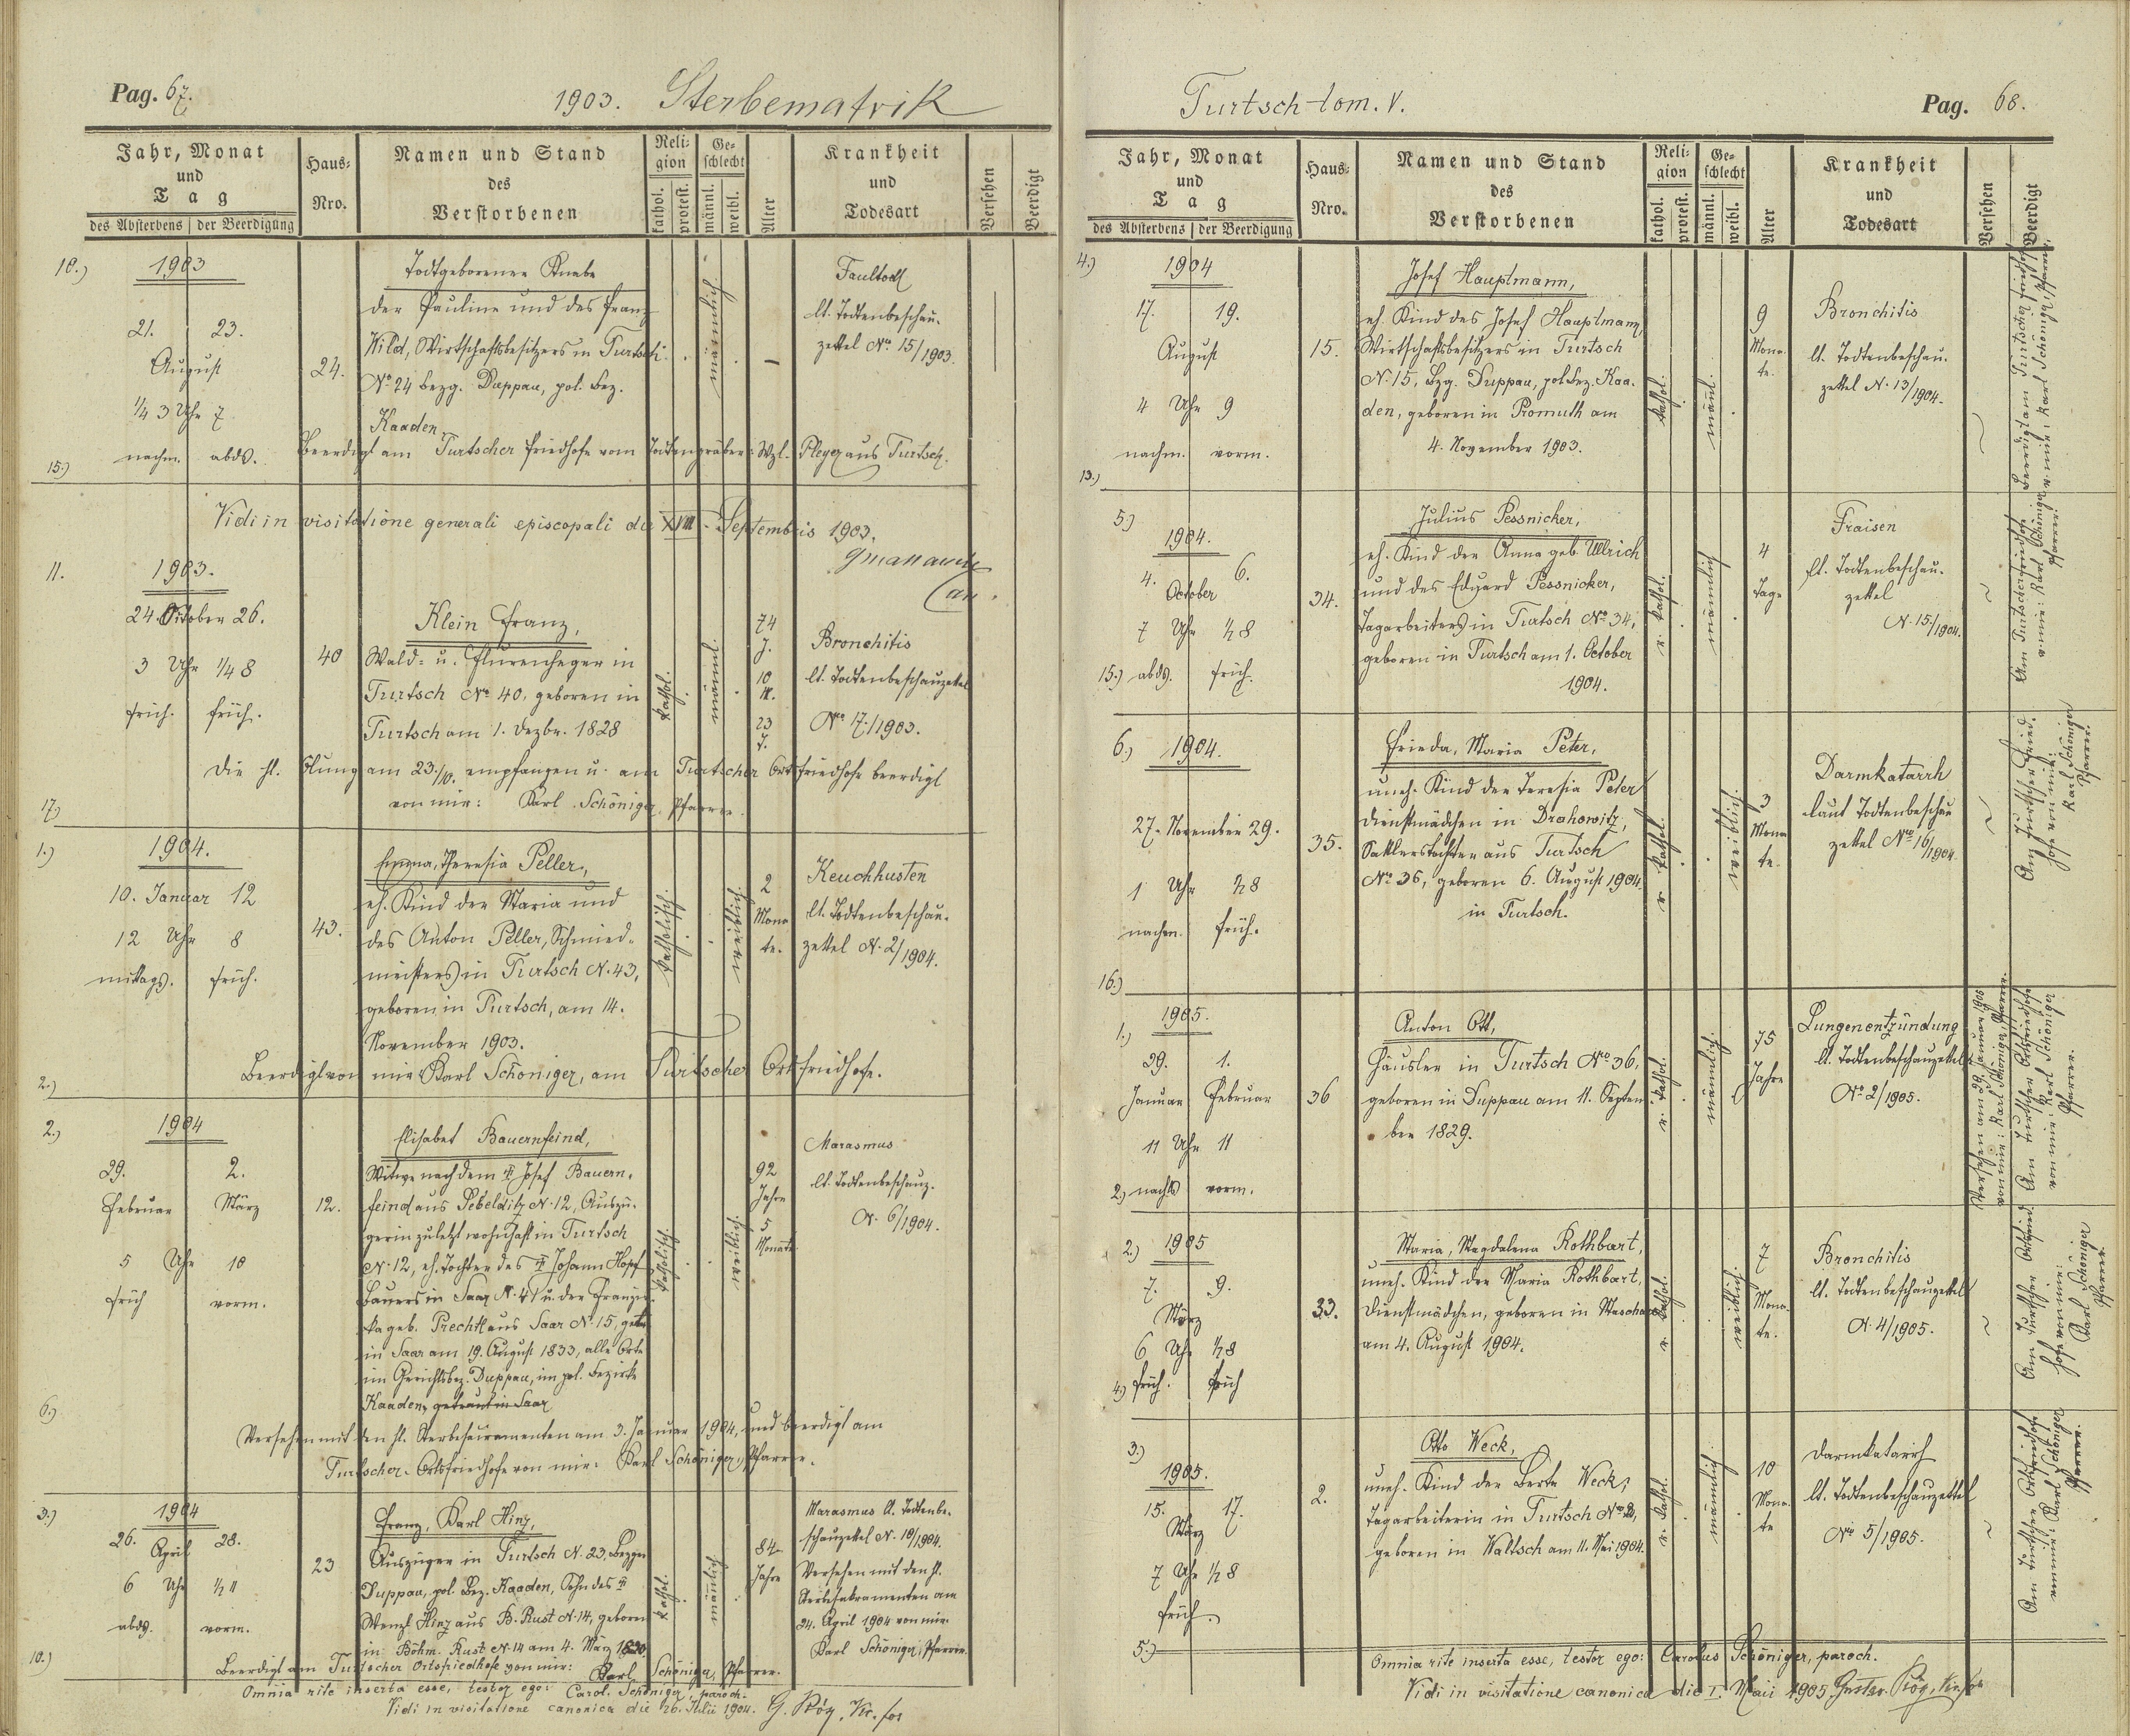 Pag. 67.
1903. Sterbematrik
Jahr, Monat
und
Tag
des Absterbens | der Beerdigung
Haus-
Nro.
Namen und Stand
des
Verstorbenen
Reli-
gion
kathol.
protest.
Ge-
schlecht
männl.
weibl.
Alter
Krankheit
und
Todesart
Versehen
Beerdigt
10.)
1903
21. 23.
August
1/4 3 Uhr 7
nachm. abds.
15.)
24.
Todtgeborener Knabe
der Pauline und des Franz
Wild, Wirtschaftsbesitzers in Turtsch
No 24 bezg. Duppau, pol. Bez.
Kaaden.
männlich
—
Faultodt
lt. Todtenbeschau-
zettel No 15/1903.
Beerdigt am Turtscher Friedhofe vom Todtengräber: Wzl. Pleyer aus Turtsch.
Vidi in visitatione generali episcopali die XVIII. Septembris 1903.
11.
1903.
24. Oktober 26.
3 Uhr 1/4 8
früh. früh.
17.)
40
Klein Franz,
Wald- u. Flurenheger in
Turtsch No 40, geboren in
Turtsch am 1. Dezbr. 1828
kathol.
männl.
74
J.
10
M.
23
T.
Bronchitis
lt. Todtenbeschauzettel
No 17./1903.
Die hl. Ölung am 23./10. empfangen u. am Turtscher Ortsfriedhofe beerdigt
von mir: Karl Schöniger, Pfarrer.
1.)
1904.
10. Januar 12
12 Uhr 8
mittags. früh.
2.)
43.
Emma, Theresia Peller,
eh. Kind der Maria und
des Anton Peller, Schmied-
meisters in Turtsch N. 43,
geboren in Turtsch, am 14.
November 1903.
katholisch.
weiblich.
2
Mona-
te.
Keuchhusten
lt. Todtenbeschau-
zettel N. 2/1904.
Beerdigt von mir Karl Schöniger, am Turtscher Ortsfriedhofe.
2.)
1904
29. 2.
Februar März
5 Uhr 10
früh vorm.
6.)
12.
Elisabet Bauernfeind,
Witwe nach dem † Josef Bauern-
feind aus Sebelditz N. 12, Auszü-
gerin zuletzt wohnhaft in Turtsch
N. 12, eh. Tochter des † Johann Hopf
Bauers in Saar N. 41 u. der Franzis-
ka geb. Prechtl aus Saar N. 15, geb.
in Saar am 19. August 1833, alle Orte
im Gerichtsbez. Duppau, im pol. Bezirke
Kaaden, getraut in Saar
katholisch.
weiblich.
92
Jahre
5
Monate
Marasmus
lt. Todtenbeschauz.
N. 6/1904.
Versehen mit den hl. Sterbesacramenten am 3. Januar 1904, und beerdigt am
Turtscher Ortsfriedhofe von mir: Karl Schöniger, Pfarrer.
3.)
1904
26. 28.
April
6 Uhr 1/2 11
abds. vorm.
10.)
23
Franz, Karl Hinz,
Auszüger in Turtsch N. 23, Bezges
Duppau, pol. Bez. Kaaden, Sohn des †
Wenzl Hinz aus B. Rust N. 14, geboren
in Böhm. Rust N. 14 am 4. März 1820.
kathol.
männlich
84
Jahre
Marasmus lt. Todtenbe-
schauzettel N. 10/1904.
Versehen mit den hl.
Sterbesakramenten am
24. April 1904 von mir:
Karl Schöniger, Pfarrer.
Beerdigt am Turtscher Ortsfriedhofe von mir: Karl Schöniger, Pfarrer.
Omnia rite inserta esse, testor ego: Carol. Schöniger, paroch.
Vidi in visitatione canonica die 26. Julii 1904.
Turtsch tom. V.
Pag. 68.
Jahr, Monat
und
Tag
des Absterbens | der Beerdigung
Haus-
Nro.
Namen und Stand
des
Verstorbenen
Reli-
gion
kathol.
protest.
Ge-
schlecht
männl.
weibl.
Alter
Krankheit
und
Todesart
Versehen
Beerdigt
4.)
1904
17. 19.
August
4 Uhr 9
nachm. vorm.
13.)
15.
Josef Hauptmann,
eh. Kind des Josef Hauptmann,
Wirtschaftsbesitzers in Turtsch
N. 15, Bzg. Duppau, pol. Bez. Kaa-
den, geboren in Promuth am
4. November 1903.
kathol.
männl.
9
Mona-
te.
Bronchitis
lt. Todtenbeschau-
zettel N. 13/1904.
Beerdigt am Turtscher Friedhof
v. mir: Karl Schöniger, Pfarrer.
5.)
1904.
4. 6.
October
7 Uhr 1/2 8
15.) abds. früh.
34.
Julius Pessnicker,
eh. Kind der Anna geb. Ullrich
und des Eduard Pessnicker,
Tagarbeiters in Turtsch No 34,
geboren in Turtsch am 1. October
1904.
r. kathol.
männlich
4
Tage
Fraisen
lt. Todtenbeschau-
zettel
N. 15/1904.
Am Turtscher Friedhofe
v. mir: Karl Schöniger
Pfarrer.
6.)
1904.
27. November 29.
1 Uhr 1/2 8
nachm. früh.
16.)
35.
Frieda, Maria Peter,
uneh. Kind der Teresia Peter
Dienstmädchen in Drahowitz,
Sattlerstochter aus Turtsch
No 36, geboren 6. August 1904
in Turtsch.
r. kathol.
weiblich.
3
Mona-
te.
Darmkatarrh
laut Todtenbeschau
zettel No 16/1904.
Am Turtscher Fried-
hofe von mir:
Karl Schöniger
Pfarrer.
1.)
1905.
29. 1.
Januar Februar
11 Uhr 11
2.) nachts vorm.
36
Anton Ott,
Häusler in Turtsch No 36,
geboren in Duppau am 11. Septem-
ber 1829.
r. kathol.
männlich
75
Jahre
Lungenentzündung
lt. Todtenbeschauzettel
No 2/1905.
Versehen am 29. Januar 1905
von mir: Karl Schöniger, Pfarrer.
Am Turtscher Ortsfriedhofe
von mir: Karl Schöniger
Pfarrer.
2.)
1905
7. 9.
März
6 Uhr 1/2 8
4.) früh. früh
33.
Maria, Magdalena Rothbart,
uneh. Kind der Maria Rothbart,
Dienstmädchen, geboren in Maschau
am 4. August 1904.
r. kathol.
weiblich.
7
Mona-
te.
Bronchitis
lt. Todtenbeschauzettel
N. 4/1905.
Am Turtscher Ortsfried-
hofe von mir:
Karl Schöniger
Pfarrer.
3.)
1905.
15. 17.
März
7 Uhr 1/2 8
früh.
5.)
2.
Otto Weck,
uneh. Kind der Berta Weck,
Tagarbeiterin in Turtsch No 2,
geboren in Waltsch am 11. Mai 1904.
r. kathol.
männlich
10
Mona-
te
Darmkatarrh
lt. Todtenbeschauzettel
No 5/1905.
Am Turtscher Ortsfriedhofe
von mir: Karl Schöniger
Pfarrer.
Omnia rite inserta esse, testor ego: Carolus Schöniger, paroch.
Vidi in visitatione canonica die 1. Maii 1905.